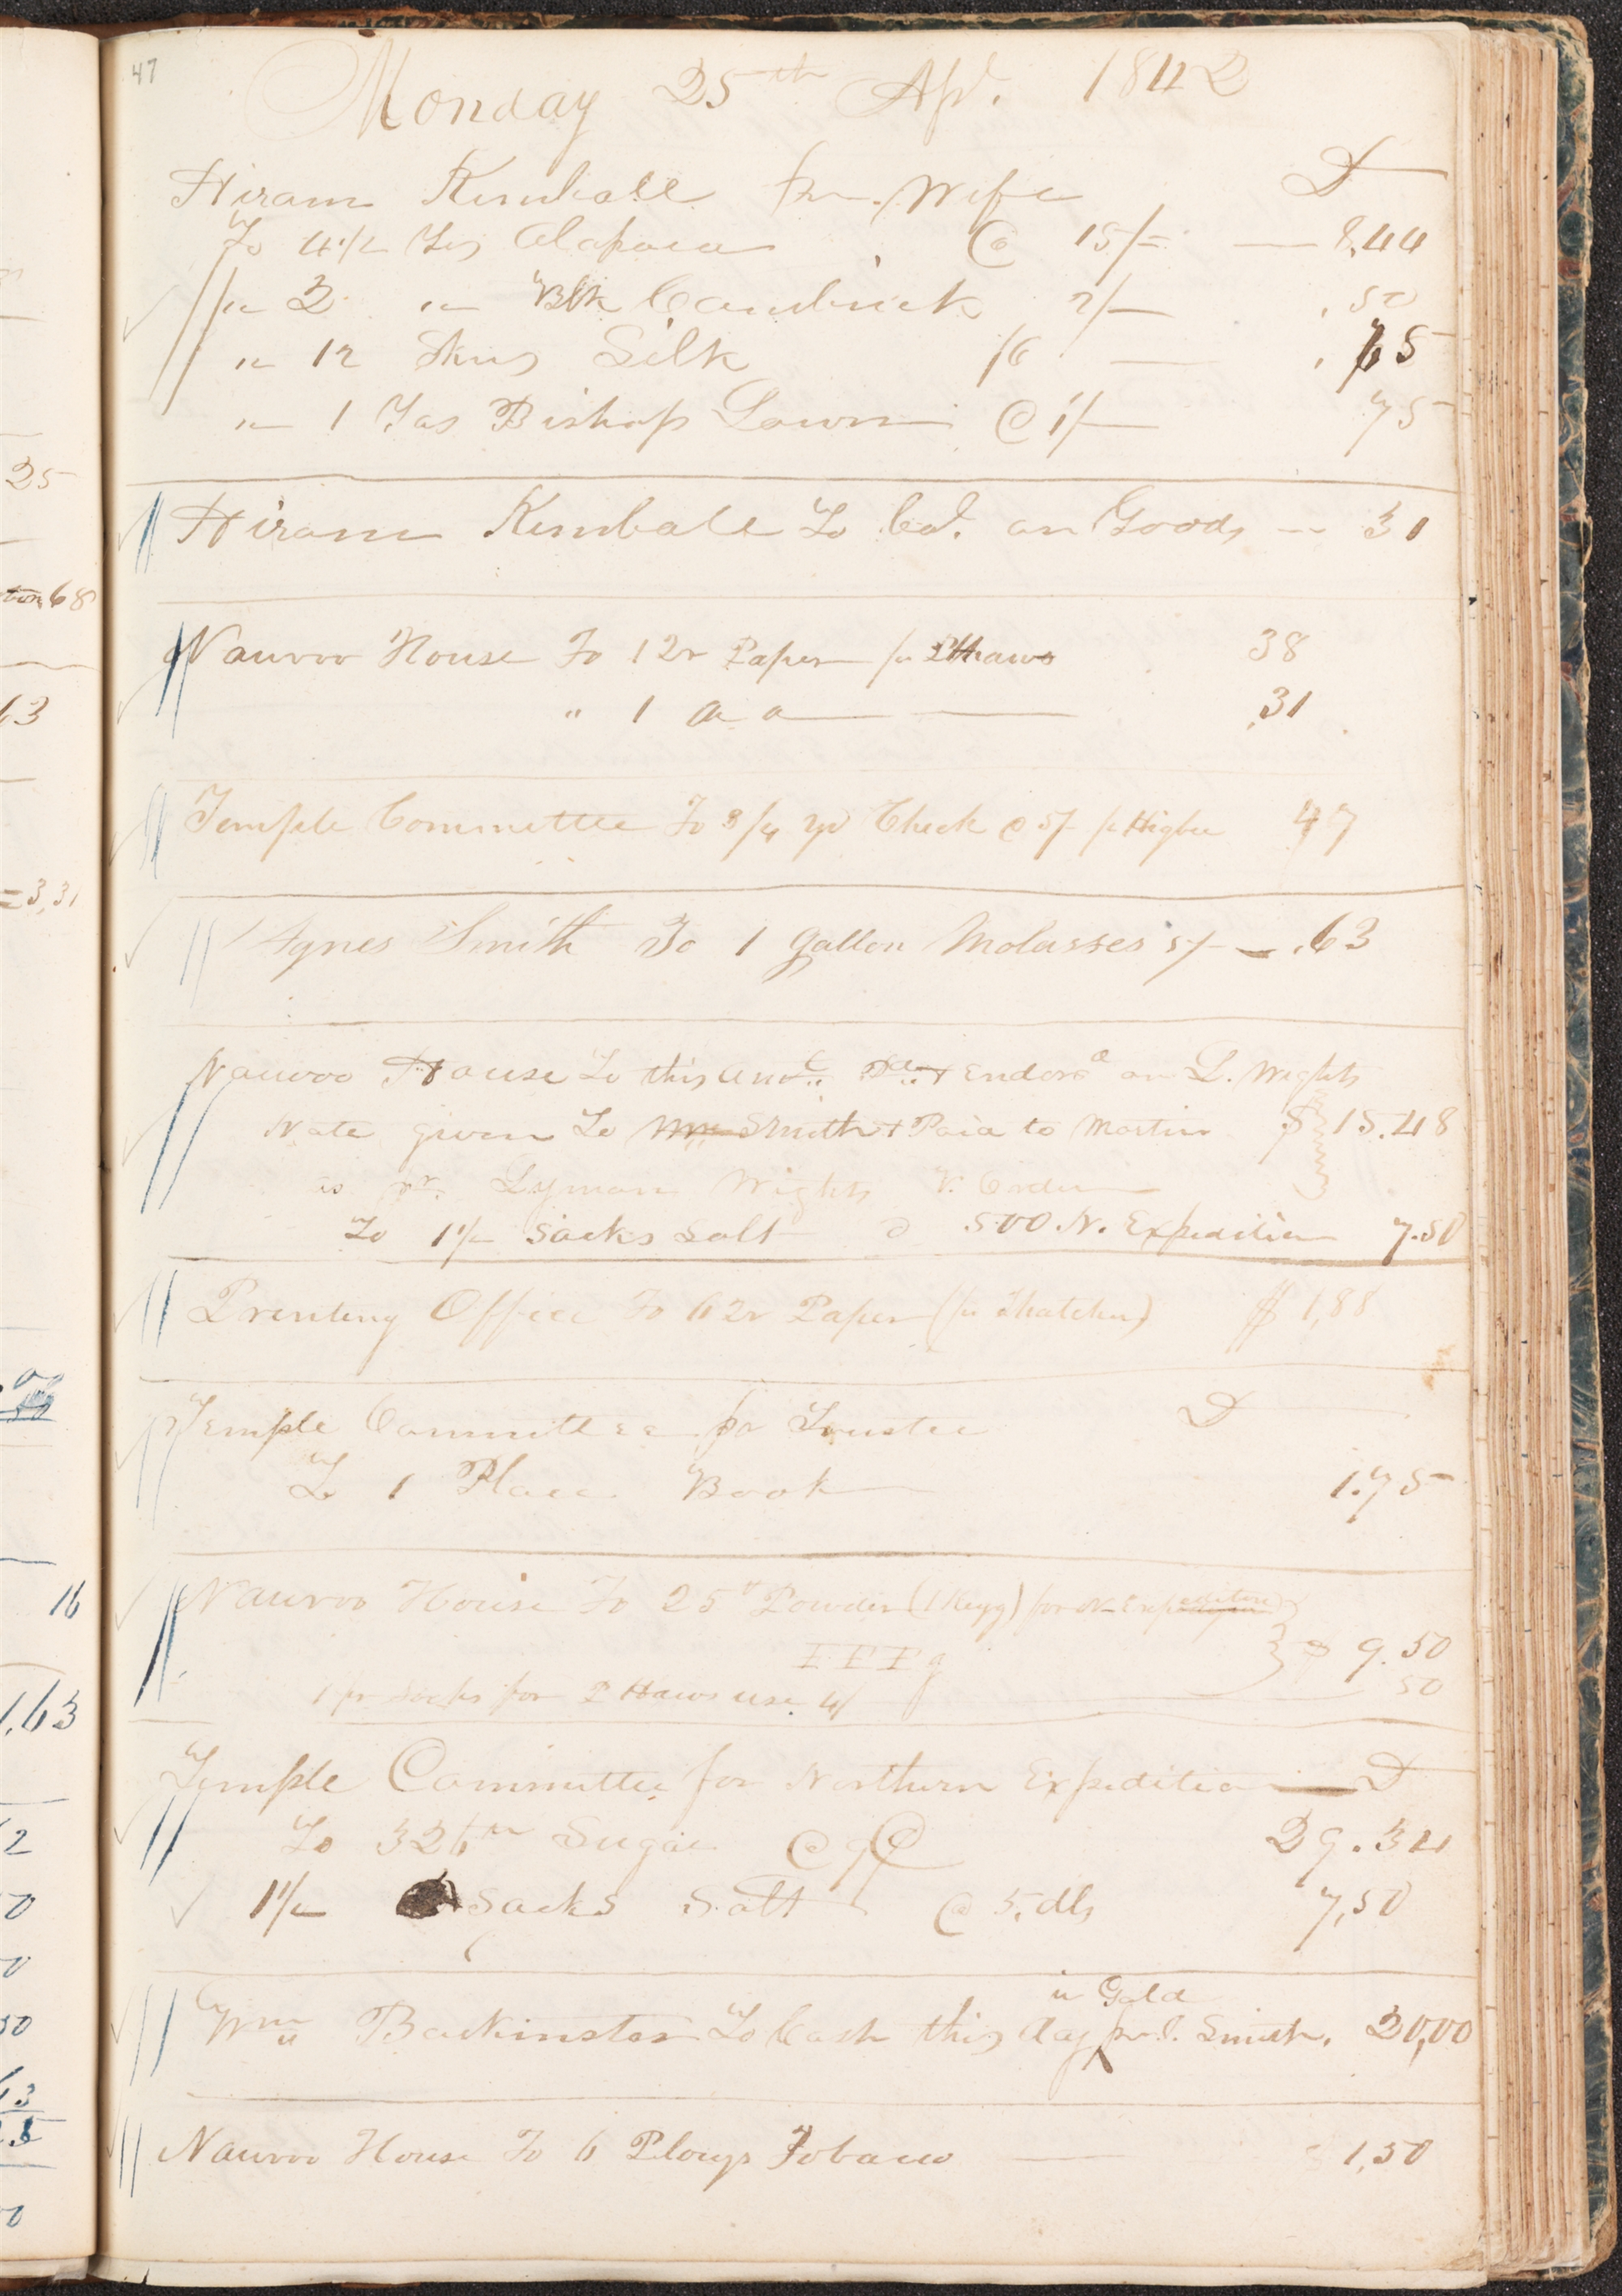 47
Monday 25th Apl. 1842
Hiram Kimball pr. Wife D
To 4 1/2 Yds Alapaca @ 15/– 8,44
" 2 " Blk Cambrick 2/– .50
" 12 Skns Silk /6 .75
" 1 Yas Bishop Lawn @ 1/– 75
Hiram Kimball To Bal. on Goods 31
Nauvoo House To 1 2r Paper pr P Haws 38
" 1 a a 31
Temple Committee To 3/4 yd Check @ 5/– pr Higbee 47
Agnes Smith To 1 gallon Molasses 5/– .63
Nauvoo House To this endorsd on L. Wights
Note given To Smith & Paid to Martin $ 15.48
as pr. Lyman Wights V. Order
To 1 1/2 Sacks Salt @ 500 N. Expedition 7.50
Printing Office To 6 2r Paper (pr Thatcher) $ 1,88
Temple Committee pr Trustee D
To 1 Place Book 1.75
Nauvoo House To 25 Powder (1 Kegg) for N Expedition
F F F g $ 9.50
1 pr Socks for P Haws use 4/ 50
Temple Committee for Northern Expedition D
To 326 Sugar @ 9C 29.34
1 1/2 Sacks Salt @ 5. dls 7,50
in Gold
Wm Backinstos To Cash this day pr J. Smith. 20,00
Nauvoo House To 6 Plougs Tobacco 1,50
25
68
63
=3,31
16
1,63
2
0
0
50
63